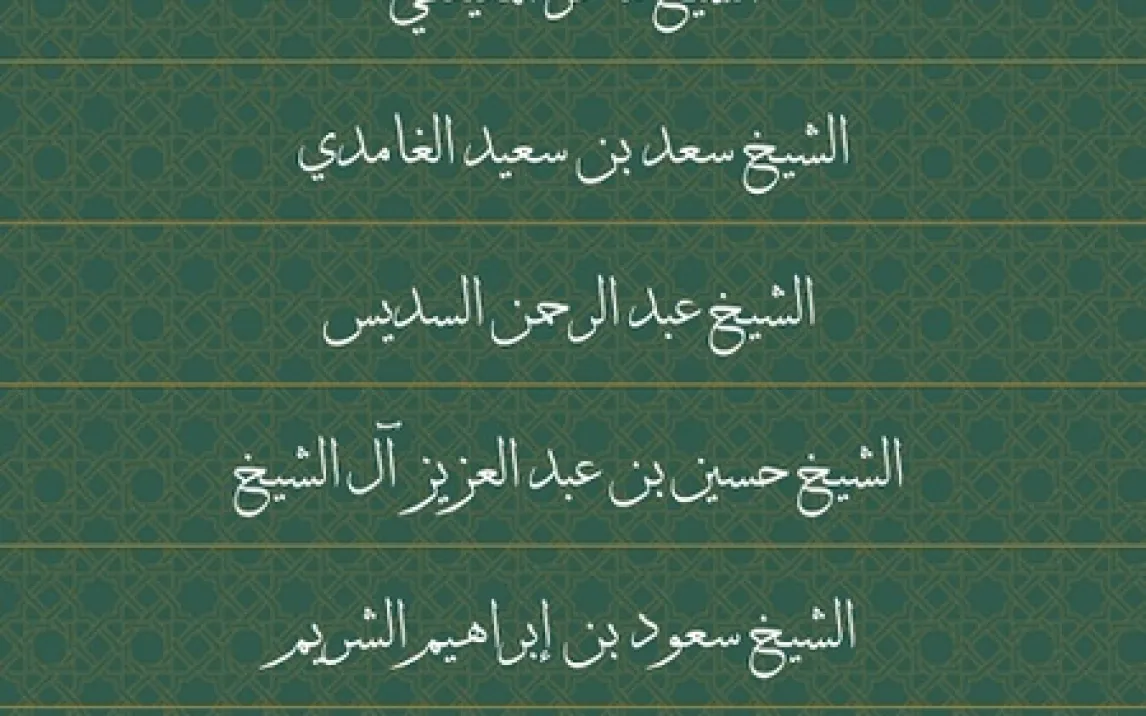 الشيخ
الشيخ سعد بن سعيد الغامدي
الشيخ عبد الرحمن السديس
الشيخ حسين بن عبد العزيز آل الشيخ
الشيخ سعود بن إبراهيم الشريم